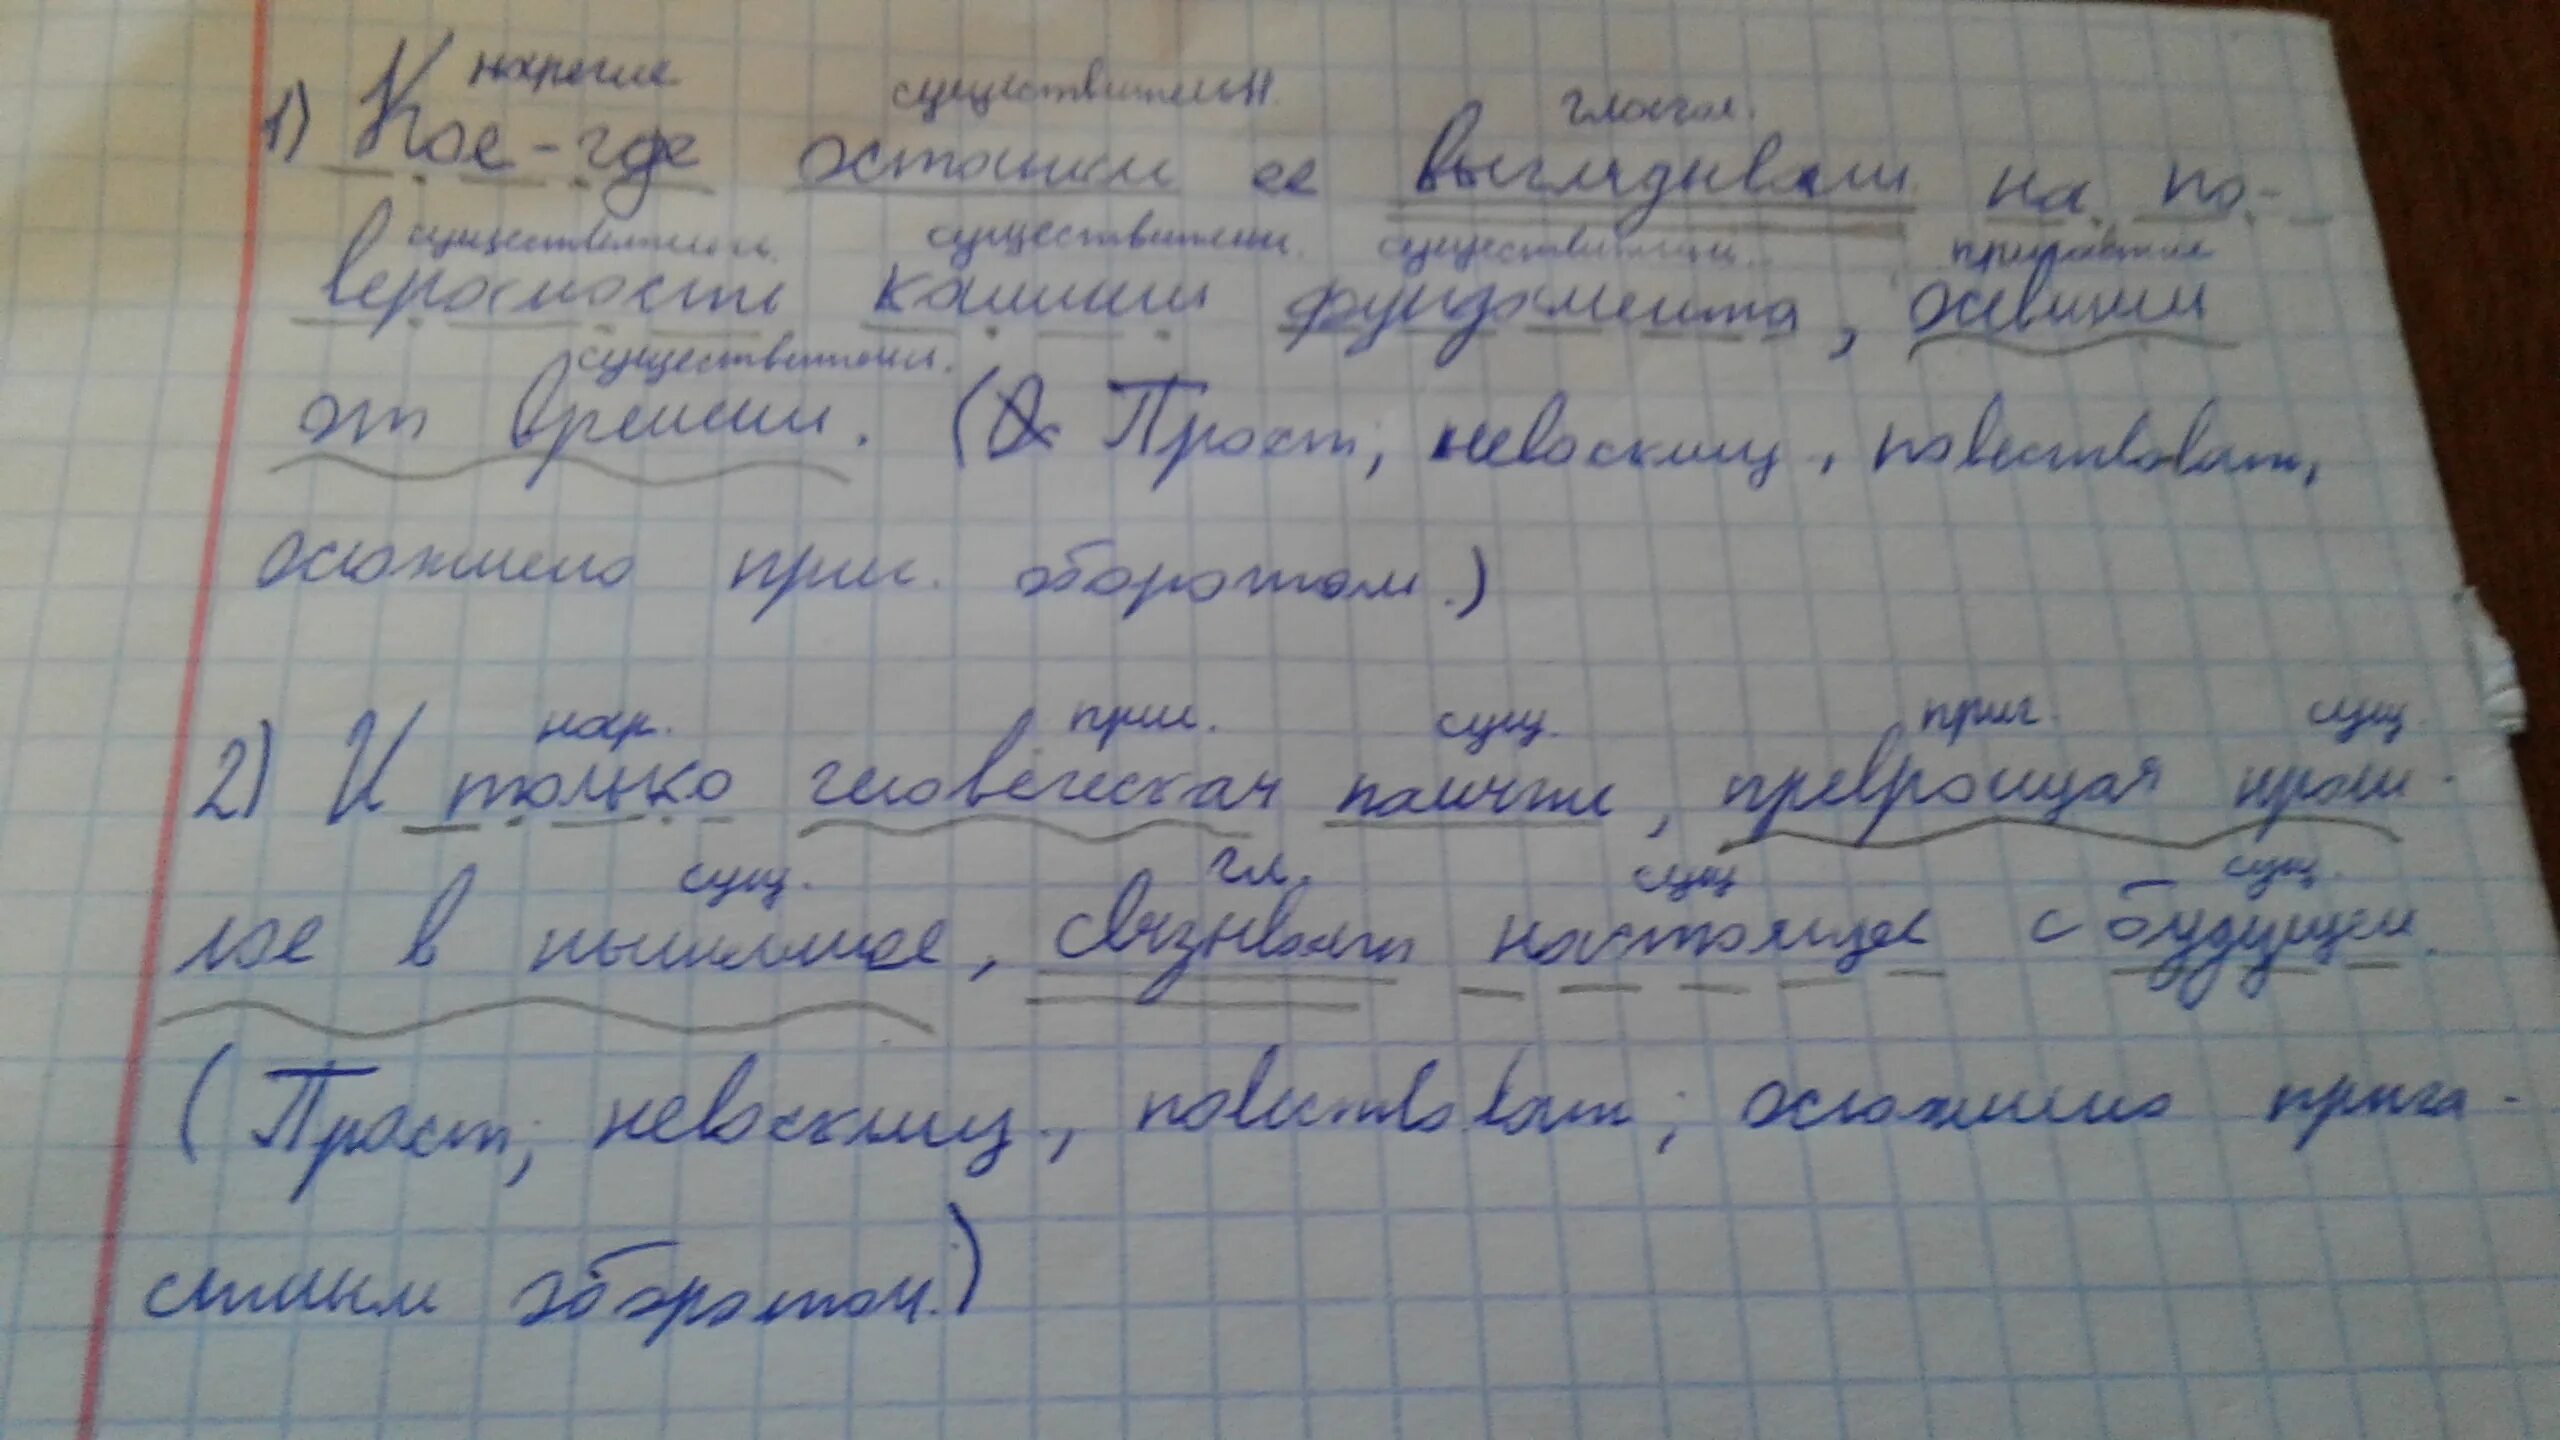 наречие существительн. глагол.
1) Кое-где останки ее выглядывали на по-
существительн. существительн. существительн. причастие
верхность камнями фундамента, осевшими
существительн.
от времени. (Прост, невосклиц, повествоват,
осложнено прич. оборотом.)
нар. прил. сущ. прич. сущ.
2) И только человеческая память, превращая прош-
сущ. гл. сущ сущ.
лое в нынешнее, связывает настоящее с будущем.
(Прост, невосклиц., повествоват; осложнено прича-
стным оборотом.)